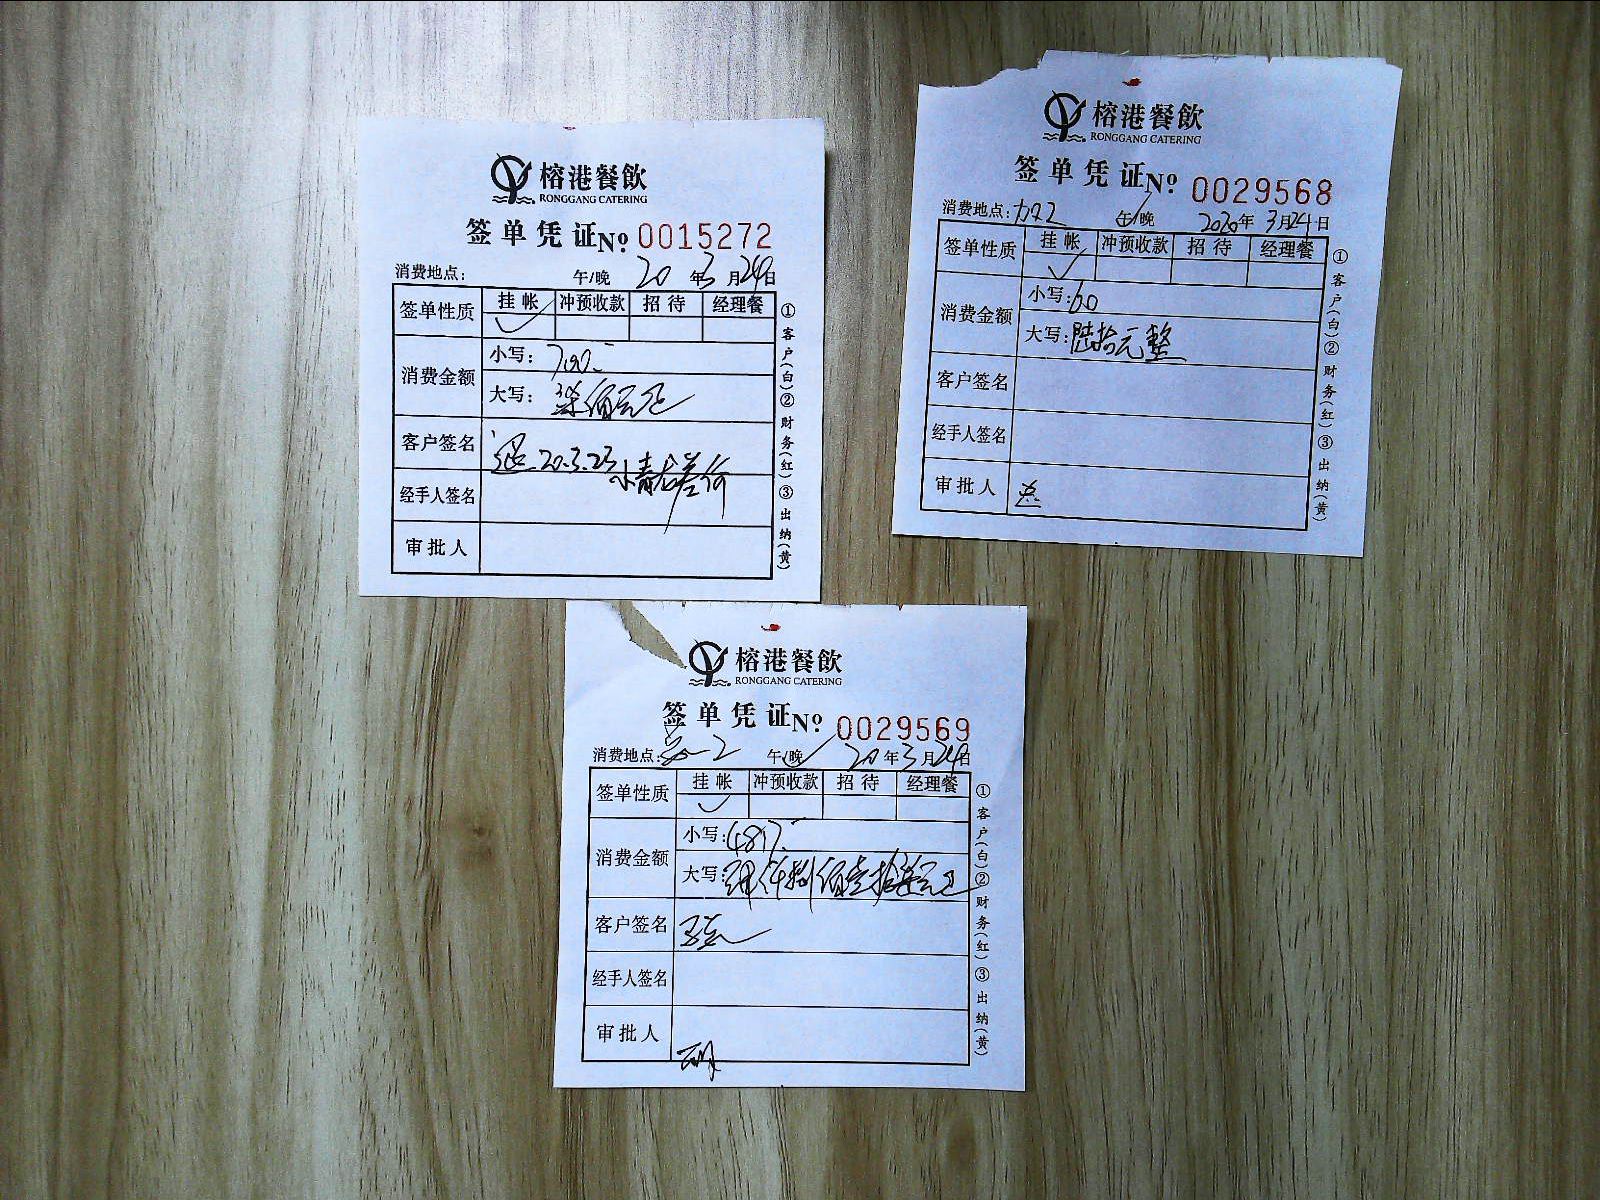 榕港餐飲
RONGGANG CATERING
签单凭证 № 0015272
消费地点: 午/晚 20年3月24日
签单性质 挂帐 冲预收款 招待 经理餐
✓
消费金额 小写: 700.-
大写: 柒佰元正
客户签名 退 20.3.23
小青龙差价
经手人签名
审批人
①客户(白)②财务(红)③出纳(黄)
榕港餐飲
RONGGANG CATERING
签单凭证 № 0029568
消费地点: 午/晚 2020年3月24日
签单性质 挂帐 冲预收款 招待 经理餐
✓
消费金额 小写: 60
大写: 陆拾元整
客户签名
经手人签名
审批人
①客户(白)②财务(红)③出纳(黄)
榕港餐飲
RONGGANG CATERING
签单凭证 № 0029569
消费地点: 午/晚 20年3月24日
签单性质 挂帐 冲预收款 招待 经理餐
✓
消费金额 小写: 4817.-
大写: 肆仟捌佰壹拾柒元正
客户签名
经手人签名
审批人
①客户(白)②财务(红)③出纳(黄)